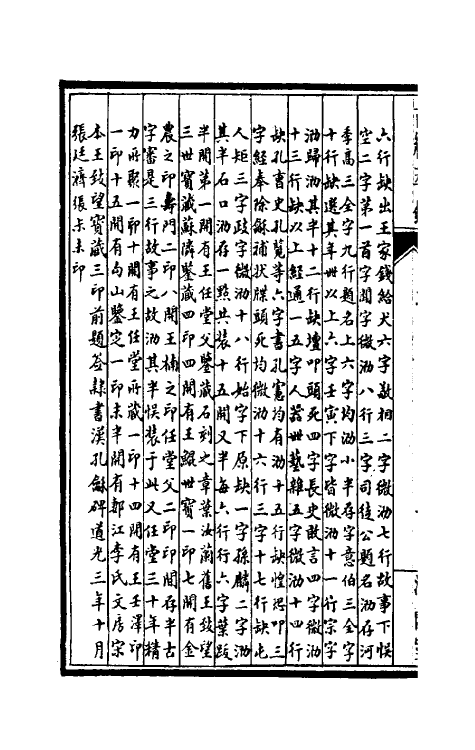 六行缺出王家錢給犬六字敢相二字微泐七行故事下悮
空二字第一首字闕字微泐八行三字司徒公題名泐存河
季高三全字九行題名上六字均泐小半存字意伯三全字
十行缺選其年丗以上六字壬寅下字皆微泐十一行宗字
泐歸泐其半十二行缺壇叩頭死四字長史敢言四字微泐
十三行缺以上經通一五字人器丗藝雜五字微泐十四行
缺孔書史孔覽等六字書孔憲均有泐十五行缺惶恐叩三
字經奉除龢補狀牒頭死均微泐十六行三字十七行缺屯
人矩三字政字微泐十八行始字下原缺一字孫麟二字泐
其半石口泐存一點共裝十五開又半每六行行六字葉跋
半開第一開有王任堂父鑒藏石刻之章葉汝蘭舊王致望
三丗寶藏蘇隣鑒藏四印四開有王鯤丗寶一印七開有金
農之印壽門二印八開王楠之印任堂父二印印閒存半古
字審是三行故事之故泐其半悮裝于此又任堂三十年精
力所聚一印十開有王任堂所藏一印十四開有王壬澤印
一印十五開有句山鑒定一印末半開有鄣江李氏文房宋
本王致望寶藏三印前題簽隸書漢孔龢碑道光三年十月
張廷濟張未未印